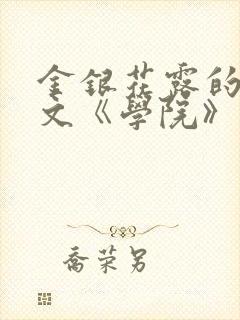 金銀花露的
文《學院》
喬荣另